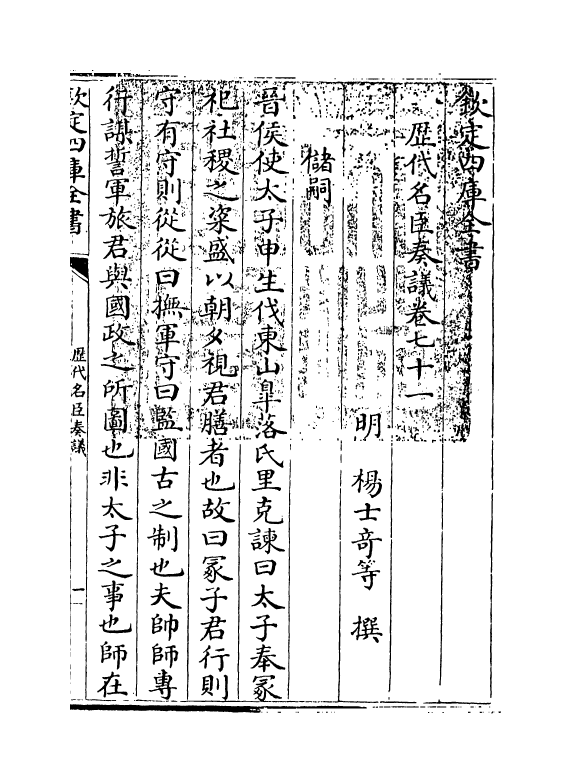 欽定四庫全書
歷代名臣奏議卷七十一
明 楊士竒等 撰
儲嗣
晉侯使太子申生伐東山臯落氏里克諫曰太子奉冢
祀社稷之粢盛以朝夕視君膳者也故曰冢子君行則
守有守則從從曰撫軍守曰監國古之制也夫帥師專
行謀誓軍旅君與國政之所圖也非太子之事也師在
欽定四庫全書
歷代名臣奏議
一